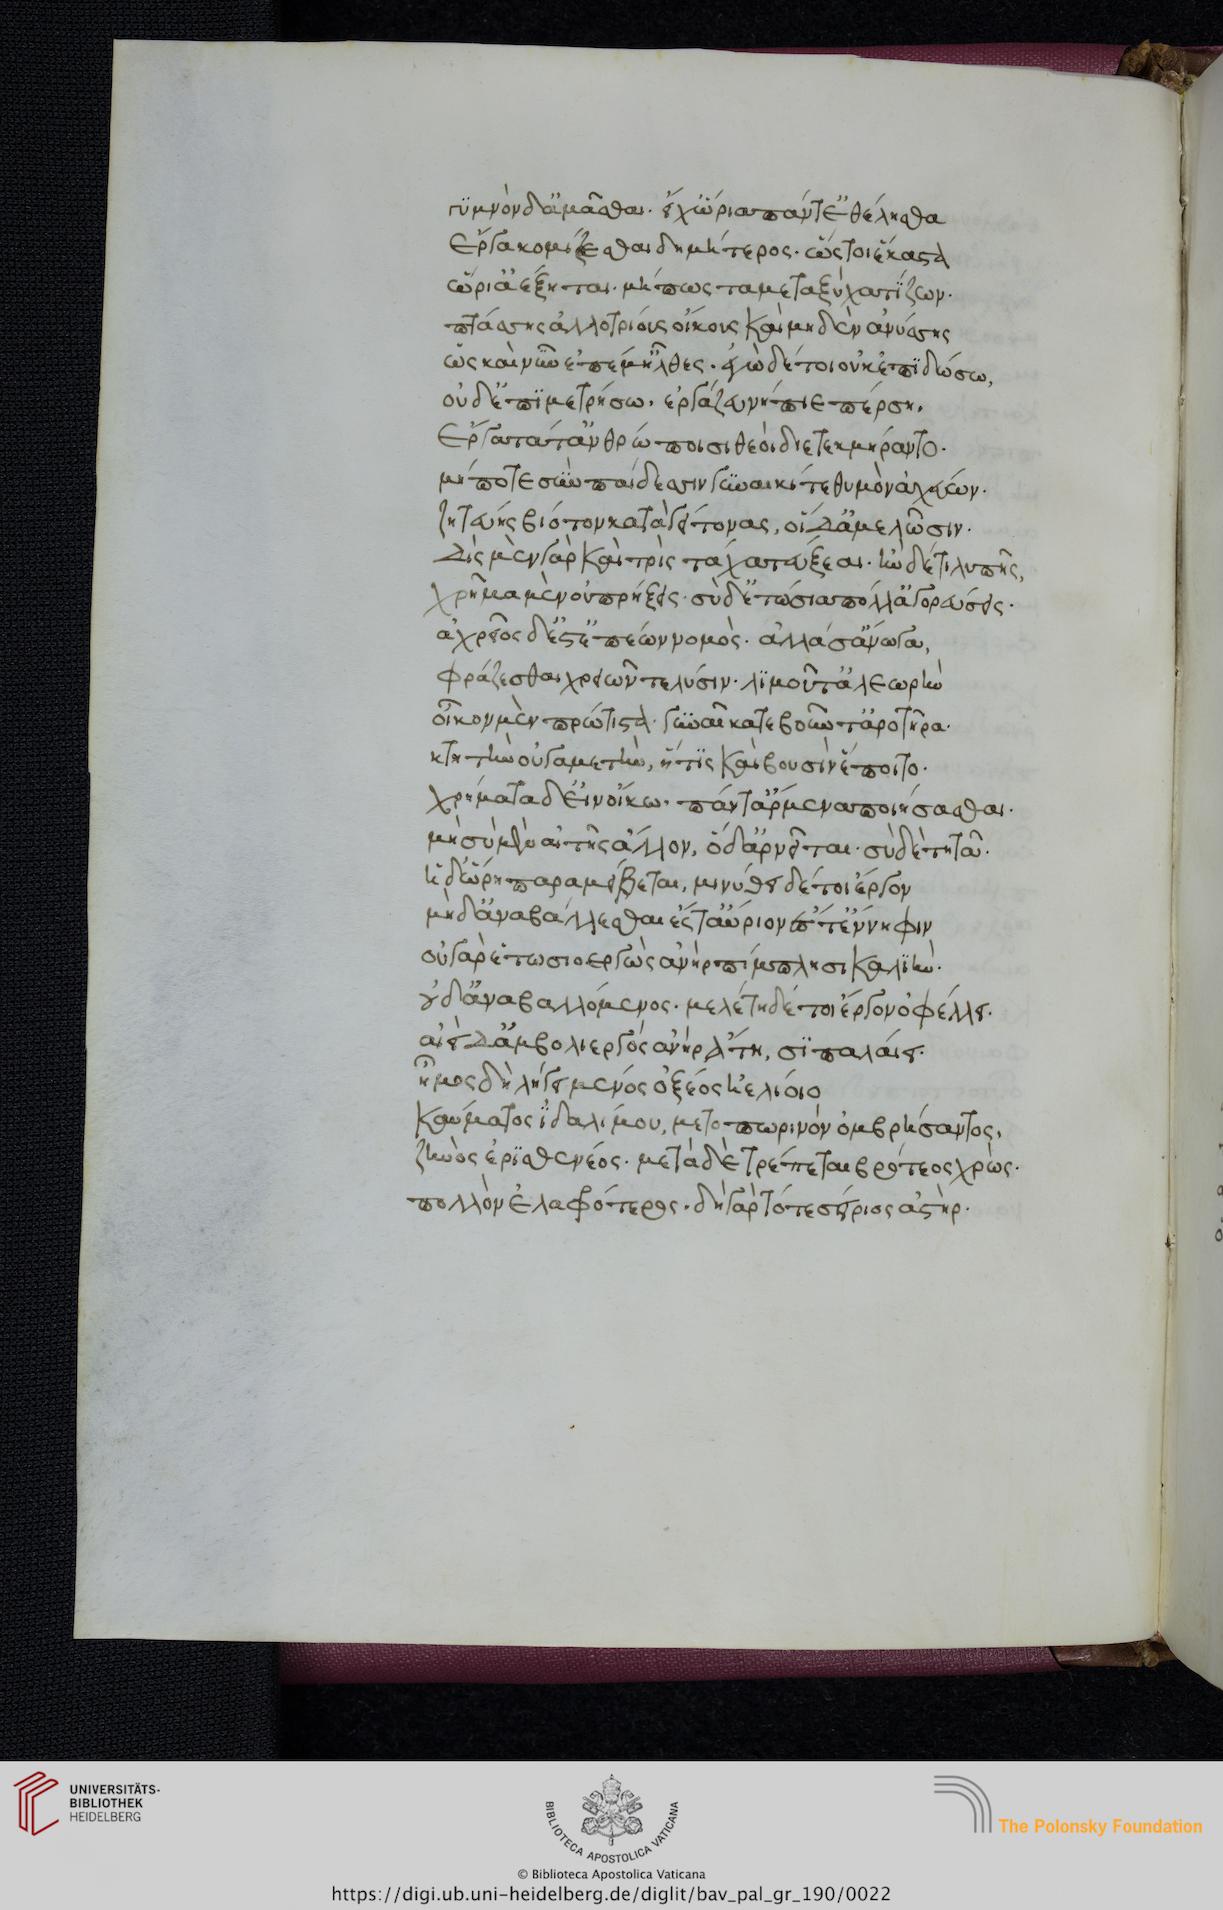 γϋμνὸν δ' ἀμᾶσθαι. εἴ χ' ὥρια πάντ' ἐθέλησθα
ἔργα κομίζεσθαι δημήτερος. ὥς τοι ἕκαστα
ὥρι' ἀέξηται. μή πως τα μεταξὺ χατίζων.
πτώσσῃς ἀλλοτρίοις οἴκοις καὶ μηδὲν ἀνύσσης
ὡς καὶ νῦν ἐπ' ἔμ' ἦλθες. ἐγὼ δέ τοι οὐκ ἐπϊδώσω,
οὐδ' ἐπϊμετρήσω. ἐργάζευ νήπιε πέρση.
ἔργα τά τ' ἀνθρώποισι θεοὶ διετεκμήραντο.
μή ποτε σὺν παίδεσσιν γυναικί τε θυμὸν ἀχεύων.
ζητεύῃς βιότον κατὰ γείτονας, οἵ δ' ἀμελῶσιν.
δὶς μὲν γὰρ καὶ τρὶς τάχα τεύξεαι. ἢν δ' ἔτι λυπῇς,
χρῆμα μὲν οὐ πρήξεις. σὺ δ' ἐτώσια πόλλ' ἀγορεύσεις.
ἀχρεῖος δ' ἔστ' ἐπέων νομὸς. ἀλλά σ' ἄνωγα,
φράζεσθαι χρειῶν τε λύσιν. λϊμοῦ τ' ἀλεωρὴν
οἶκον μὲν πρώτιστα. γυναῖκα τε βοῦν τ' ἀροτῆρα.
κτητὴν οὐ γαμετὴν, ἥτϊς καὶ βουσὶν ἕποιτο.
χρήματα δ' εἰν οἴκω. πάντ' ἄρμενα ποιήσασθαι.
μὴ σὺ μὲν αἰτῇς ἄλλον, ὁ δ' ἀρνεῖται. σὺ δὲ τητᾷ.
ἡ δ' ὥρη παραμείβεται, μινύθει δέ τοι ἔργον
μὴ δ' ἀναβάλλεσθαι ἐς τ' αὔριον ἔς τ' ἔννηφιν
οὐ γὰρ ἐτωσιοεργὸς ἀνὴρ πίμπλησι καλϊὴν.
οὐδ' ἀναβαλλόμενος. μελέτη δέ τοι ἔργον ὀφέλλει.
αἰεὶ δ' ἀμβολιεργὸς ἀνὴρ ἄτῃ, σϊ παλαίει.
ἦμος δὴ λήγει μένος ὀξέος ἠελίοιο
καύματος ἰδαλίμου, μετοπωρινὸν ὀμβρήσαντος,
ζηνὸς ἐρϊσθενέος. μετὰ δὲ τρέπεται βρότεος χρὼς.
πολλὸν ἐλαφρότερος. δὴ γὰρ τότε σείριος ἀστὴρ.
UNIVERSITÄTS-
BIBLIOTHEK
HEIDELBERG
BIBLIOTECA APOSTOLICA VATICANA
The Polonsky Foundation
© Biblioteca Apostolica Vaticana
https://digi.ub.uni-heidelberg.de/diglit/bav_pal_gr_190/0022